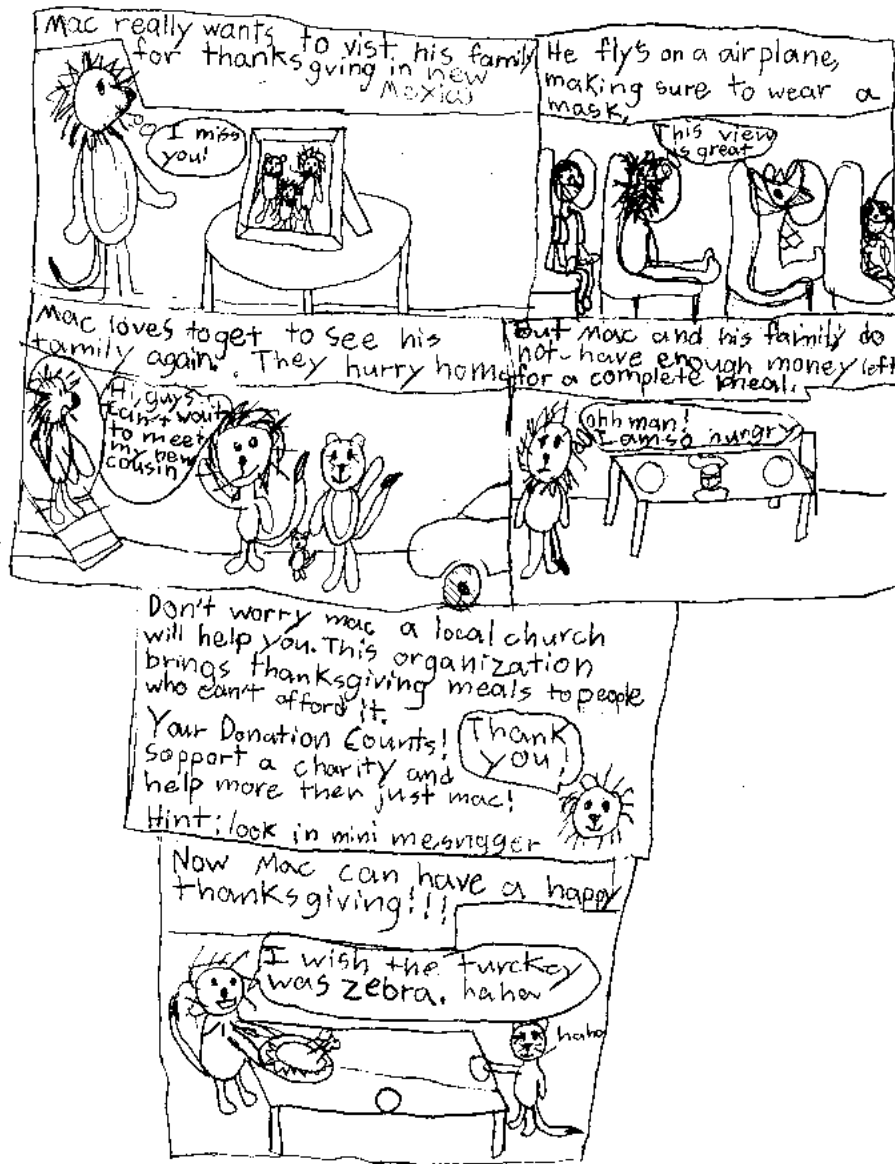 Mac really wants to vist his family
for thanksgving in new
Mexico
I miss
you!
He fly's on a airplane,
making sure to wear a
mask,
This view
is great
Mac loves toget to see his
family again. They hurry home
Hi, guys
can't wait
to meet
my new
cousin
But Mac and his faimily do
not-have enough money left
for a complete meal.
ohh man!
I am so hungry
Don't worry mac a local church
will help you. This organization
brings thanksgiving meals to people
who can't afford it.
Your Donation Counts!
Sopport a charity and
help more then just mac!
Hint: look in mini mesnigger
Thank
you!
Now Mac can have a happy
thanksgiving!!!
I wish the turckey
was zebra. haha
haha